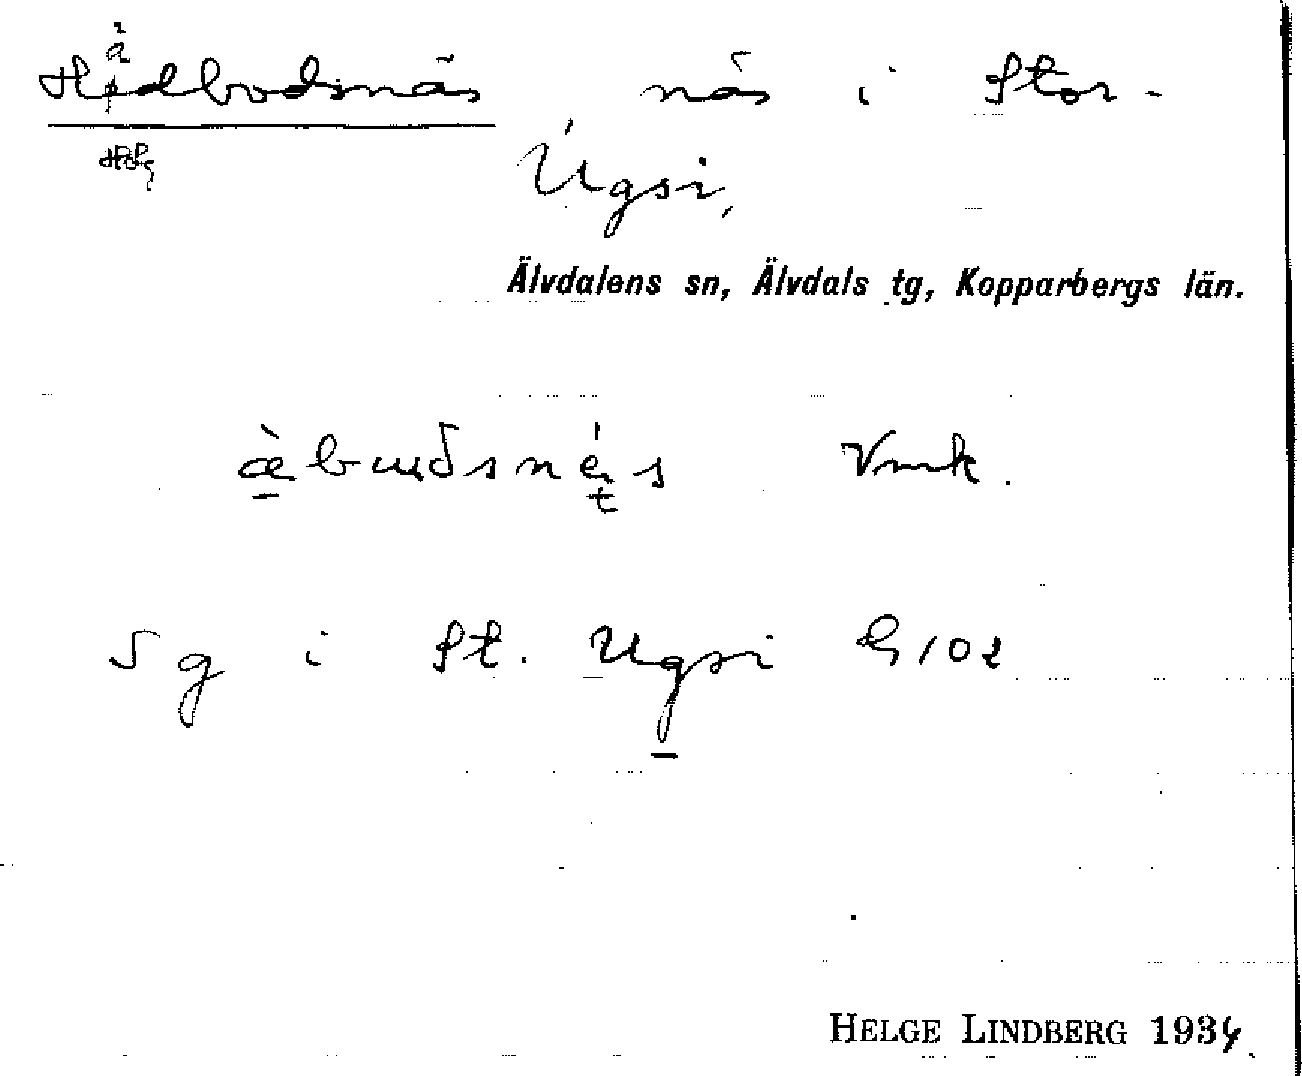 Hädbodsnäs näs i Stor-
Ugsi,
Älvdalens sn, Älvdals tg, Kopparbergs län.
Vmk.
Sg i St. Ugsi G102
HELGE LINDBERG 1934